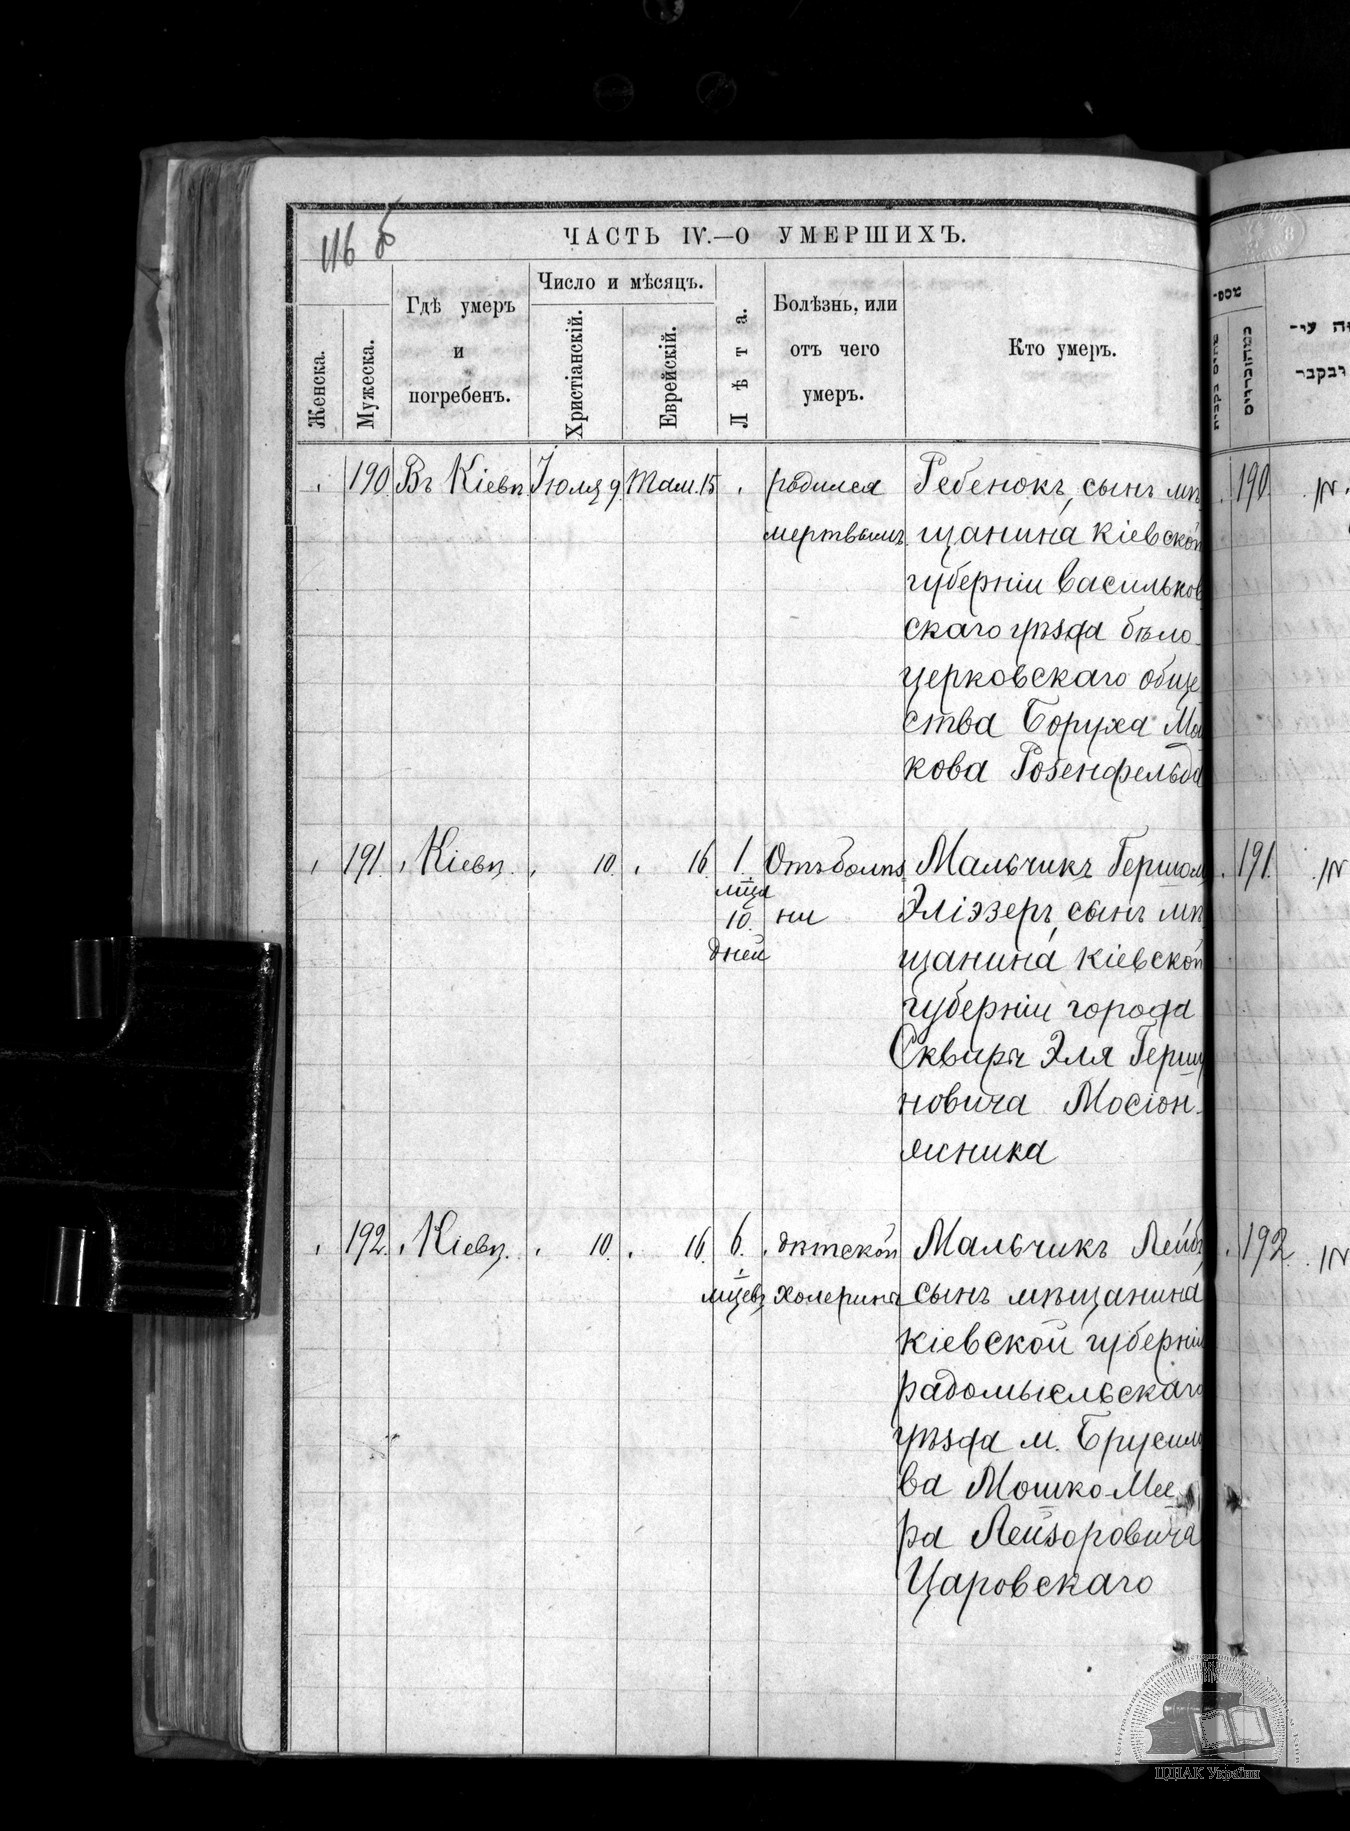 116 б
ЧАСТЬ IV.—О УМЕРШИХЪ.
Женска.
Мужеска.
Гдѣ умеръ
и
погребенъ.
Число и мѣсяцъ.
Христіанскій.
Еврейскій.
Лѣта.
Болѣзнь, или
отъ чего
умеръ.
Кто умеръ.
190 Въ Кіевѣ Іюля 9 Там. 15 родился Ребенокъ, сынъ мѣ
мертвымъ щанина кіевской
губерніи Васильков
скаго уѣзда бѣло-
церковскаго обще
ства Боруха Мош
кова Розенфельда
191. Кіевѣ. 10. 16 1. Отъ болѣз Мальчикъ Гершом
мѣца
10. ни Эліэзеръ, сынъ мѣ
дней
щанина кіевской
губерніи города
Сквиры Эля Герш
новича Мосіон-
жника
192. Кіевѣ. 10. 16 6. дѣтской Мальчикъ Лейбъ
мѣцевъ холерины сынъ мѣщанина
кіевской губерніи
радомысльскаго
уѣзда м. Брусило
ва Мошко-Мее
ра Лейзоровича
Царовскаго
190
191.
192
ЦДІАК України